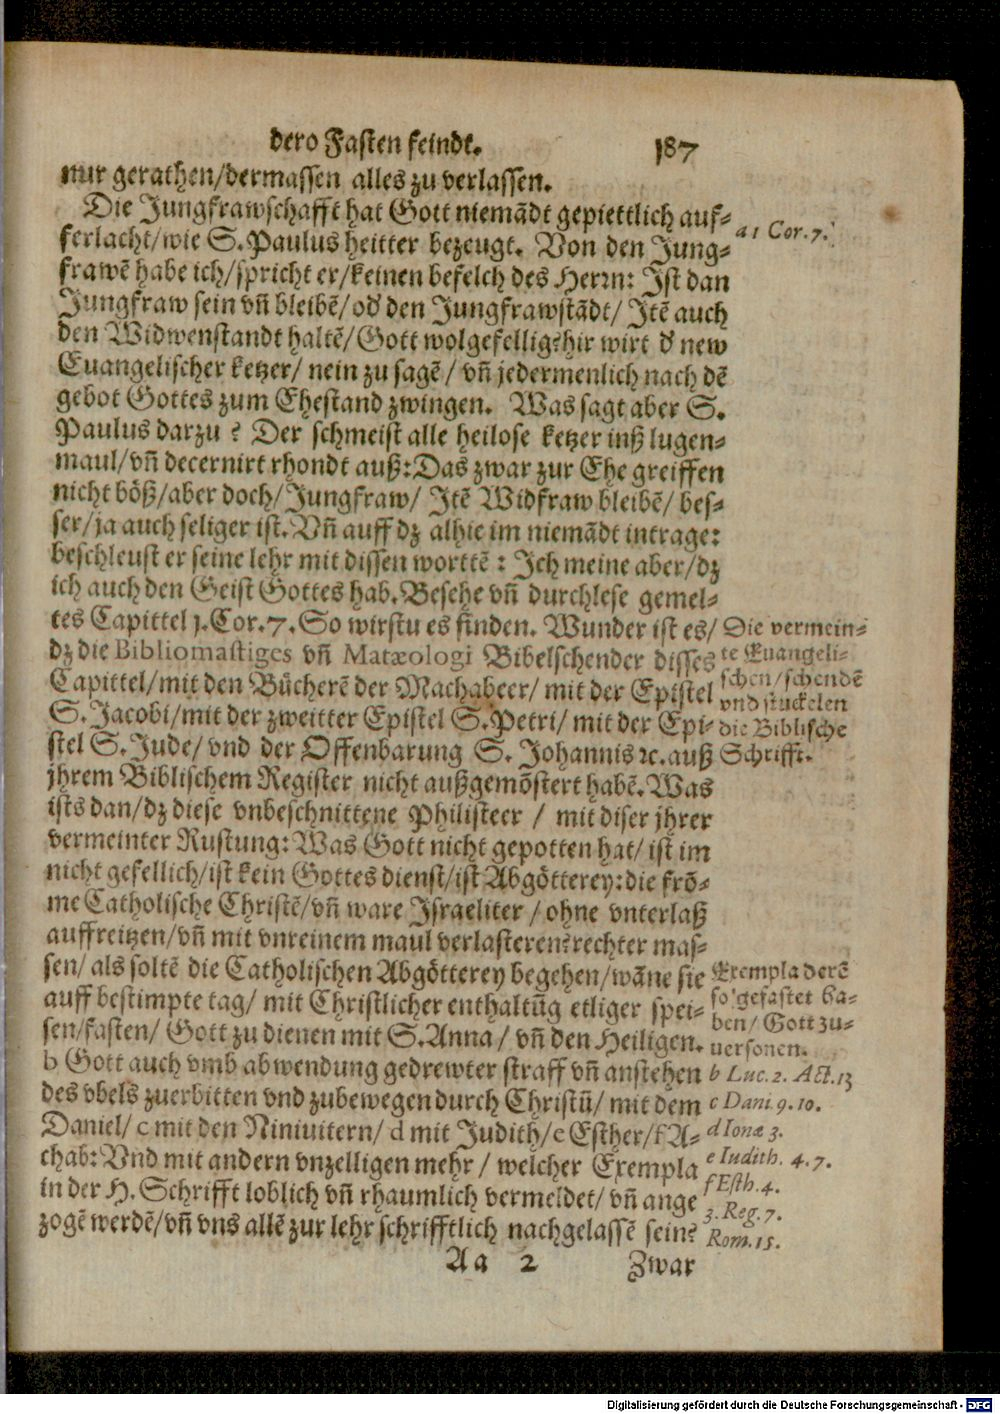 dero Fasten feindt. 187
nur gerathen/dermassen alles zu verlassen.
Die Jungfrawschafft hat Gott niemãdt gepiettlich auf-
ferlacht/wie S. Paulus heitter bezeugt. Von den Jung-
frawẽ habe ich/spricht er/keinen befelch des Herrn: Ist dan
Jungfraw sein vñ bleibẽ/od' den Jungfrawstãdt/ Itẽ auch
den Widwenstandt haltẽ/Gott wolgefellig?hir wirt d' new
Euangelischer ketzer/ nein zu sagẽ/ vñ jedermenlich nach dẽ
gebot Gottes zum Ehestand zwingen. Was sagt aber S.
Paulus darzu? Der schmeist alle heilose ketzer inß lugen-
maul/vñ decernirt rhondt auß: Das zwar zur Ehe greiffen
nicht böß/aber doch/Jungfraw/ Itẽ Widfraw bleibẽ/ bes-
ser/ja auch seliger ist. Vñ auff dz alhie im niemãdt intrage:
beschleust er seine lehr mit dissen worttẽ: Ich meine aber/dz
ich auch den Geist Gottes hab. Besehe vñ durchlese gemel-
tes Capittel 1. Cor. 7. So wirstu es finden. Wunder ist es/
dz die Bibliomastiges vñ Matæologi Bibelschender disses
Capittel/mit den Bücherẽ der Machabeer/ mit der Epistel
S. Jacobi/mit der zweitter Epistel S. Petri/ mit der Epi-
stel S. Jude/ vnd der Offenbarung S. Johannis ꝛc. auß
jhrem Biblischem Register nicht außgemöstert habẽ. Was
ists dan/dz diese vnbeschnittene Philisteer / mit diser jhrer
vermeinter Rustung: Was Gott nicht gepotten hat/ ist im
nicht gefellich/ist kein Gottes dienst/ist Abgötterey: die frõ-
me Catholische Christẽ/vñ ware Israeliter / ohne vnterlaß
auffreitzen/vñ mit vnreinem maul verlasteren?rechter mas-
sen/ als soltẽ die Catholischen Abgötterey begehen/wãne sie
auff bestimpte tag/ mit Christlicher enthaltũg etliger spei-
sen/fasten/ Gott zu dienen mit S. Anna/ vñ den Heiligen.
b Gott auch vmb abwendung gedrewter straff vñ anstehen
des vbels zuerbitten vnd zubewegen durch Christũ/ mit dem
Daniel/ c mit den Niniuitern/ d mit Judith/e Esther/f A-
chab: Vnd mit andern vnzelligen mehr / welcher Exempla
in der H. Schrifft loblich vñ rhaumlich vermeldet/ vñ ange
zogẽ werdẽ/vñ vns allẽ zur lehr schrifftlich nachgelassẽ sein?
Aa 2 Zwar
a 1 Cor. 7.
Die vermein-
te Euangeli-
schen/schendẽ
vnd stuckelen
die Biblische
Schrifft.
Exempla derẽ
so gefastet ha-
ben/ Gott zu-
uersonen.
b Luc. 2. Act. 13
c Dani. 9. 10.
d Ionæ 3.
e Iudith. 4. 7.
f Esth. 4.
3. Reg. 7.
Rom. 15.
Digitalisierung gefördert durch die Deutsche Forschungsgemeinschaft - DFG